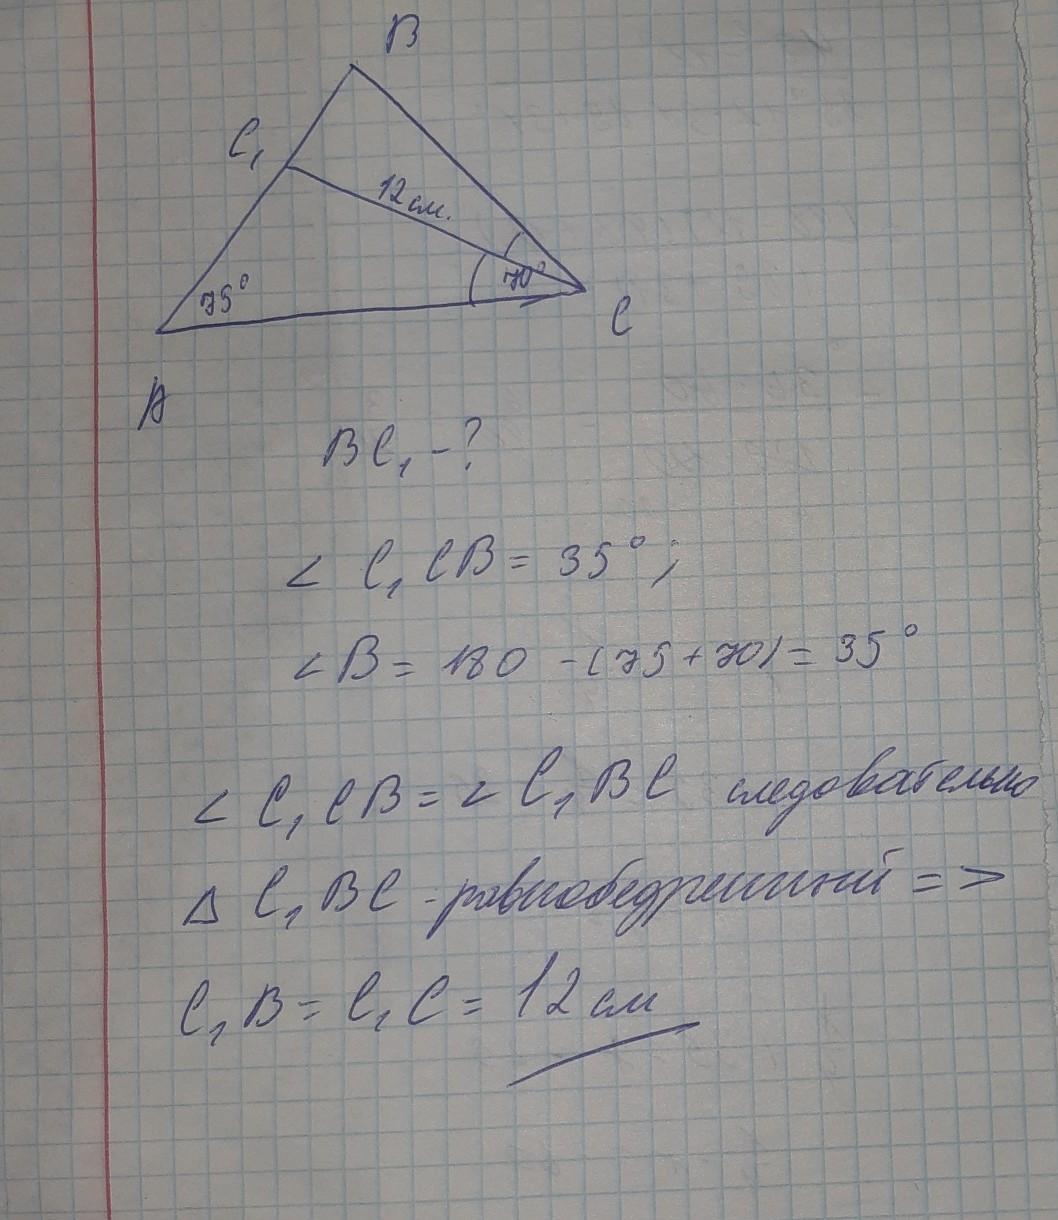 B
C₁
12 см.
75°
70°
C
A
BC₁ - ?
∠ C₁CB = 35°;
∠B = 180 - (75 + 70) = 35°
∠ C₁CB = ∠ C₁BC следовательно
Δ C₁BC - равнобедренный =>
C₁B = C₁C = 12 см